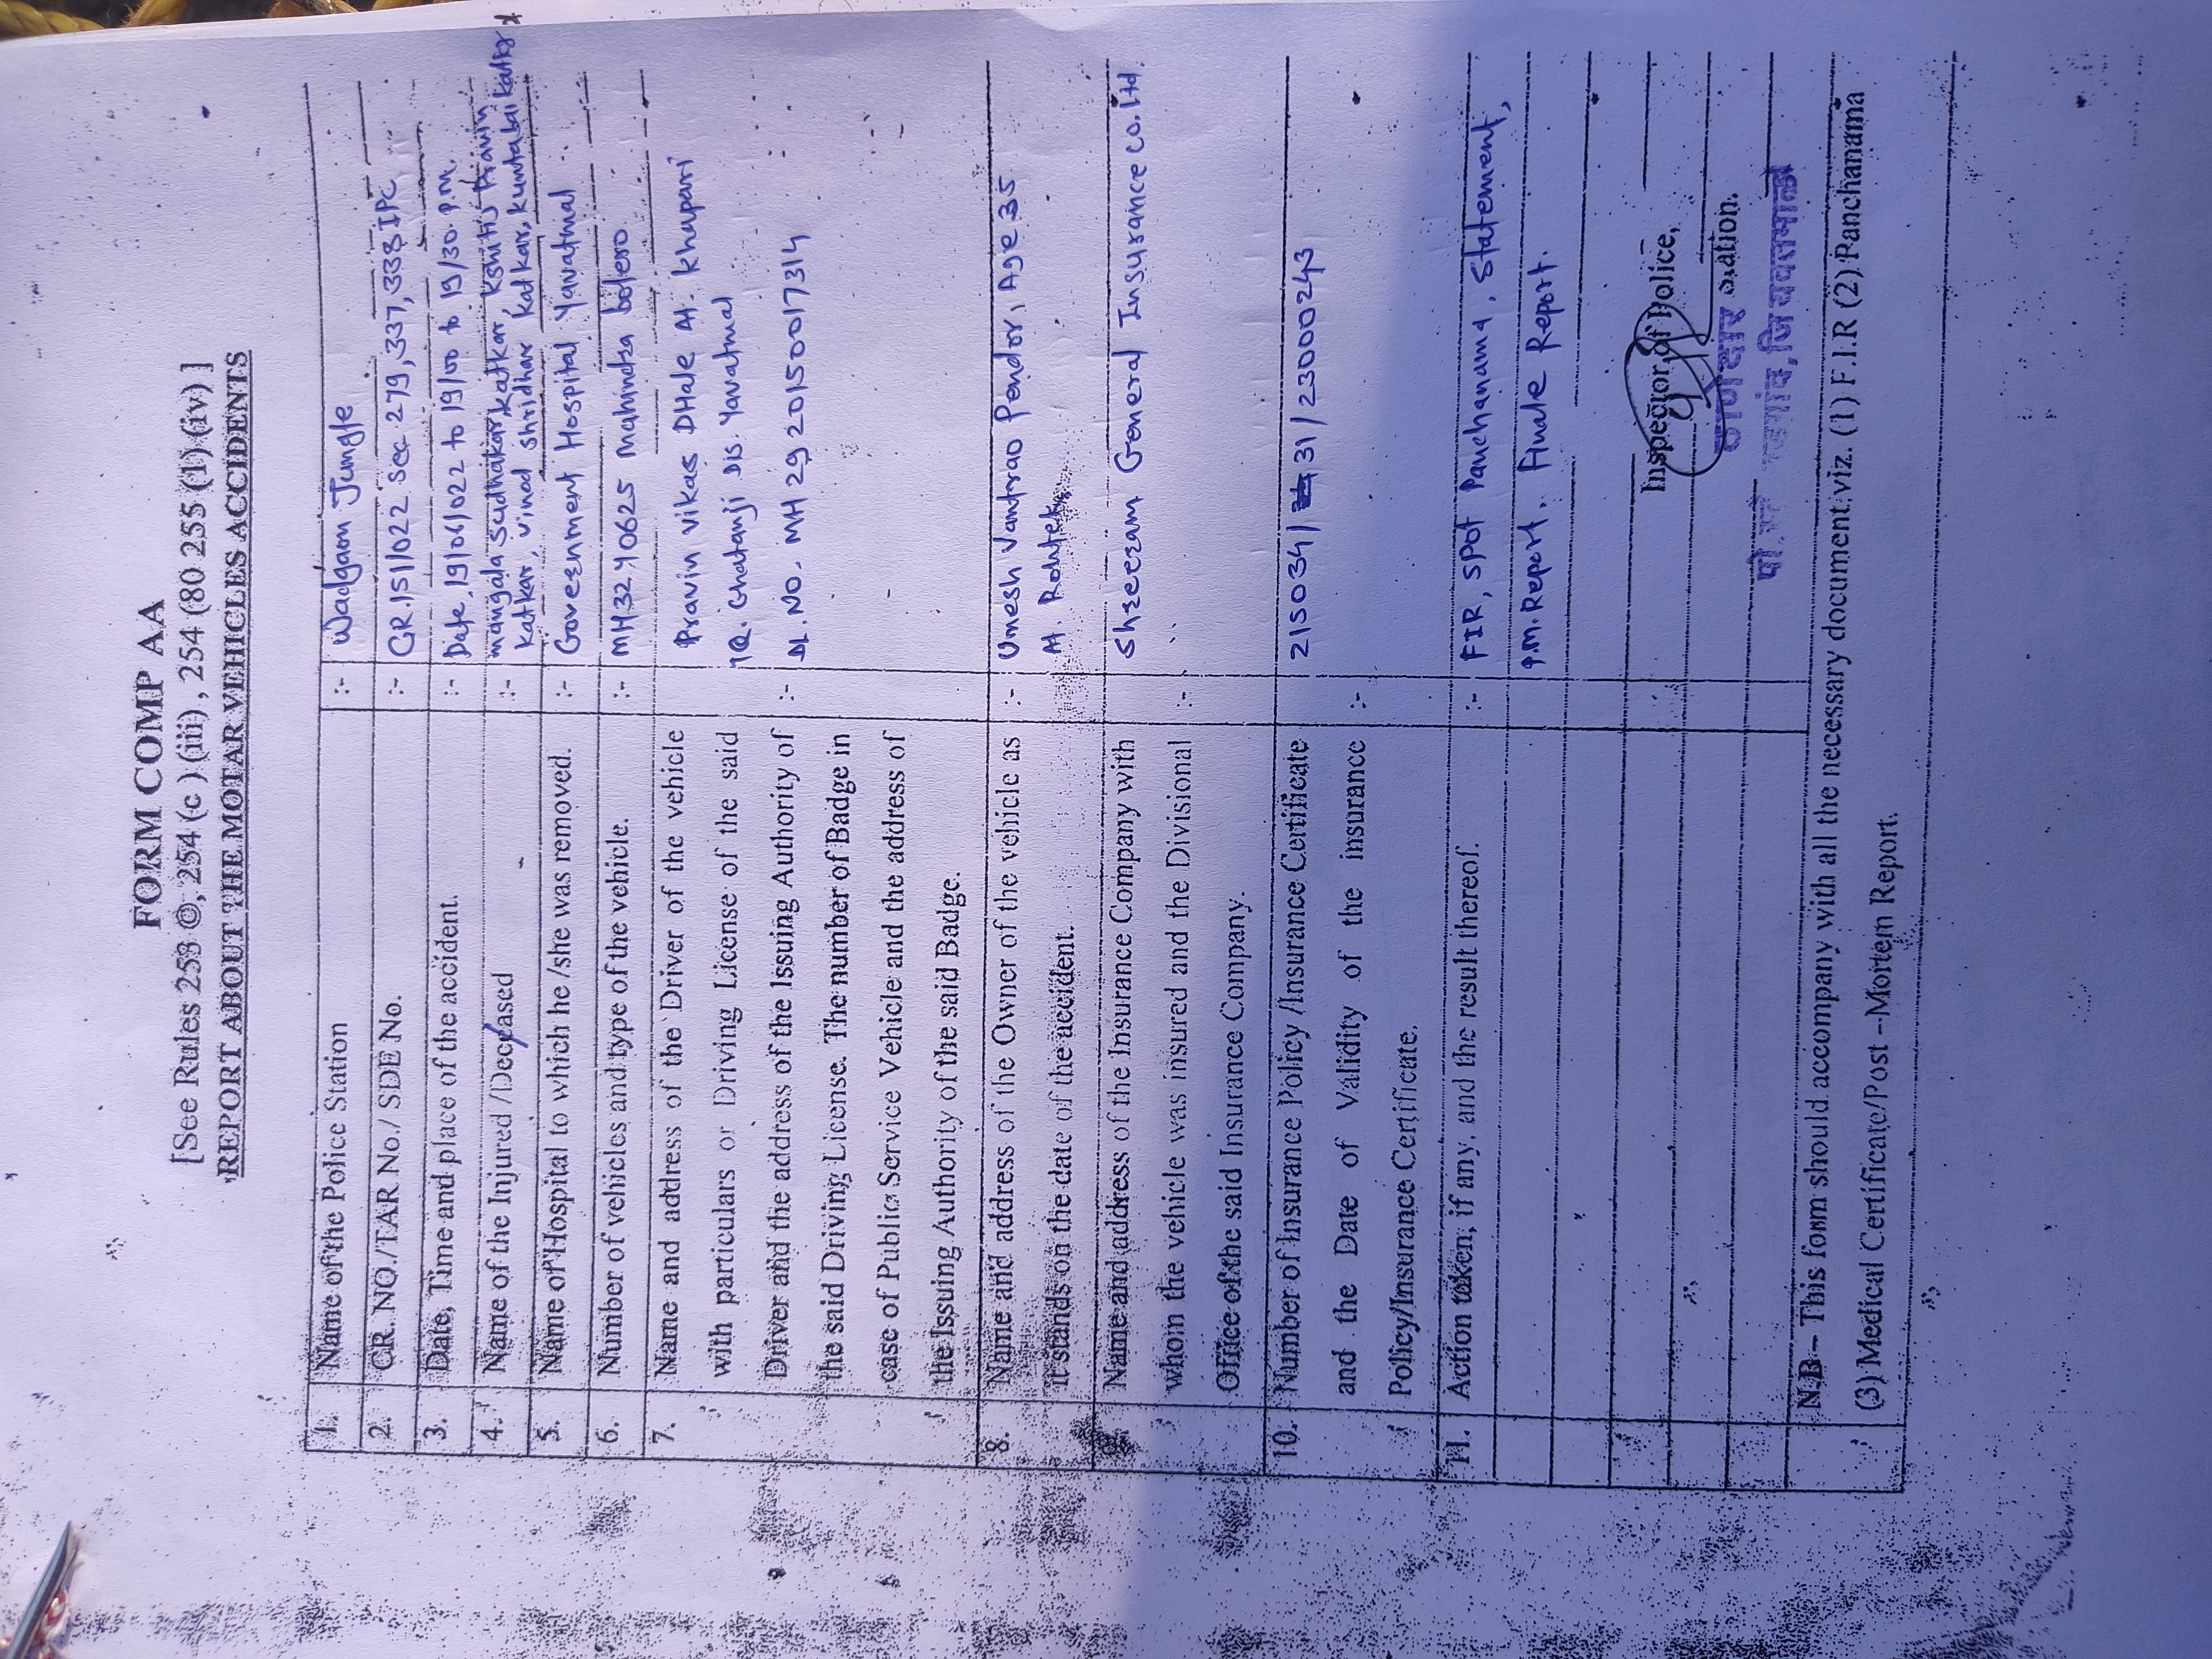 FORM COMP AA
[See Rules 253 ©, 254 (c ) (iii) , 254 (80 255 (1) (iv) ]
REPORT ABOUT THE MOTAR VEHICLES ACCIDENTS
1. Name of the Police Station :- Wadgaon Jungle
2. CR. NO./TAR No./ SDE No. :- CR.151/022 Sec 279, 337, 338 IPC
3. Date, Time and place of the accident. :- Date, 19/06/022 to 19/00 to 19/30 P.M.
4. Name of the Injured /Deceased :- mangala Sudhakar katkar, Kshitij Pravin
katkar, vinod shridhar katkar, kuntabai katkar
5. Name of Hospital to which he /she was removed. :- Goveernment Hospital Yavatmal
6. Number of vehicles and type of the vehicle. :- MH32 9 0625 Mahindra bolero
7. Name and address of the Driver of the vehicle Pravin vikas DHale At. khapari
with particulars or Driving License of the said TQ. Ghatanji DIS. Yavatmal
Driver and the address of the Issuing Authority of :- DL. NO. MH 29 20150017314
the said Driving License. The number of Badge in
case of Public Service Vehicle and the address of
the Issuing Authority of the said Badge.
8. Name and address of the Owner of the vehicle as :- Umesh Vantrao Pendor, Age 35
it stands on the date of the accident. At.
Name and address of the Insurance Company with Shreeram General Insurance Co. ltd.
whom the vehicle was insured and the Divisional :-
Office of the said Insurance Company.
10. Number of Insurance Policy /Insurance Certificate 215034/31/23000243
and the Date of Validity of the insurance :-
Policy/Insurance Certificate.
11. Action token, if any, and the result thereof. :- FIR, Spot Panchanama, Statement,
P.M. Report, Finale Report.
Inspector of Police,
ठाणेदार Station.
पो.स्टे वडगांव, जि यवतमाळ
N.B – This form should accompany with all the necessary document.viz. (1) F.I.R (2) Panchanama
(3) Medical Certificate/Post –Mortem Report.